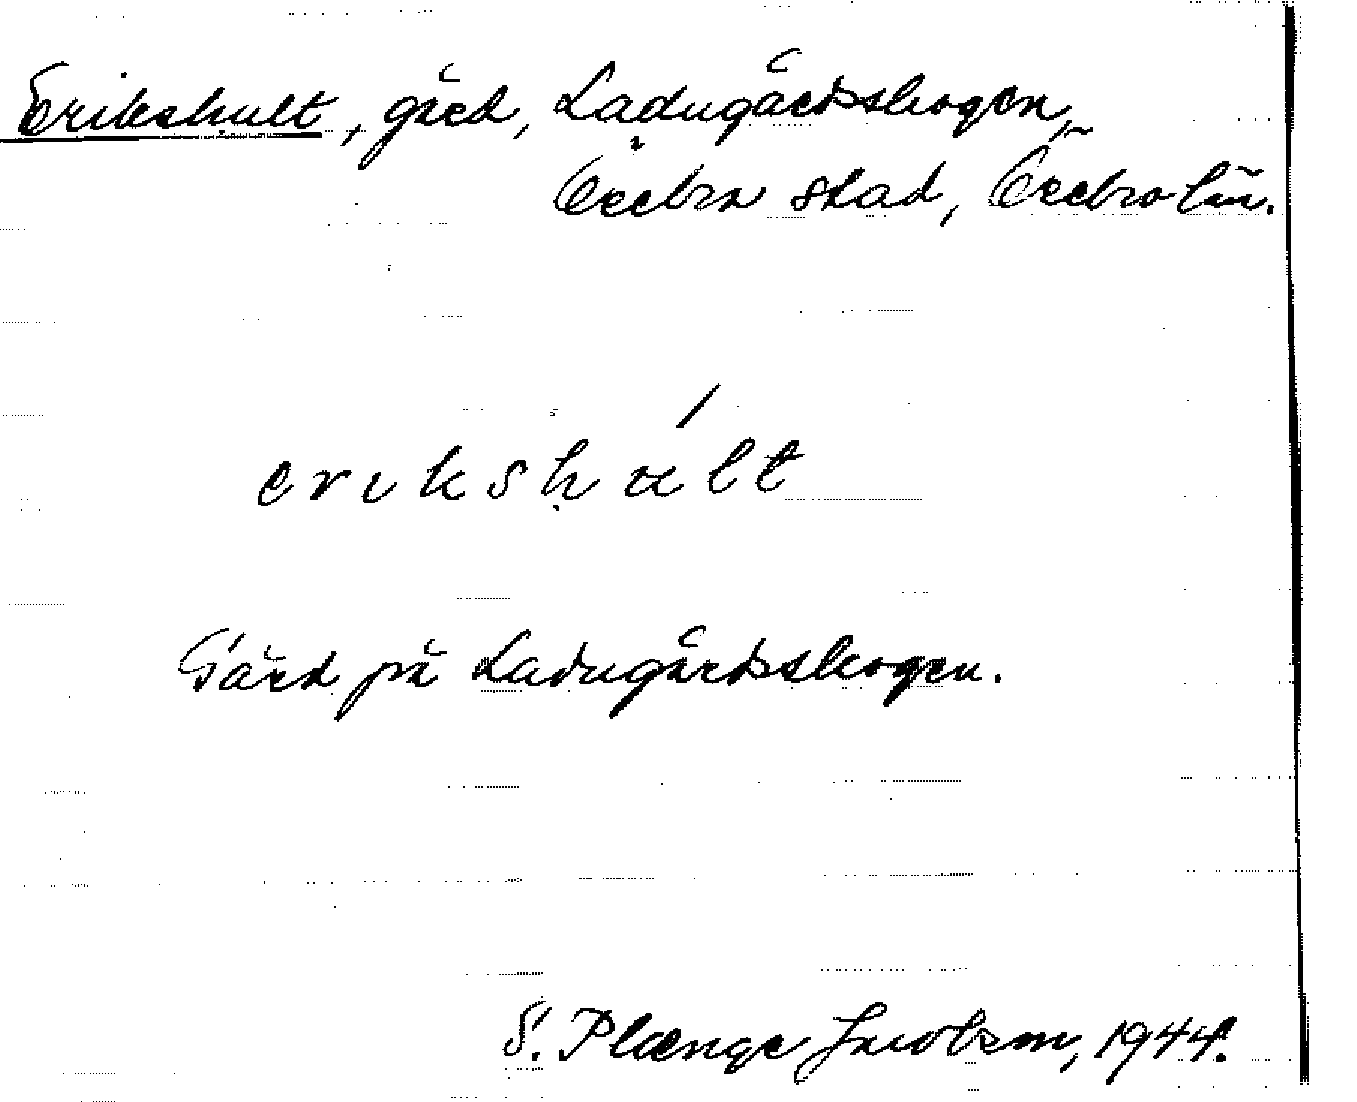 Erikshult, gård, Ladugårdsskogen,
Örebro stad, Örebro län.
erikshult
Gård på Ladugårdsskogen.
S. Plænge Jacobson, 1944.